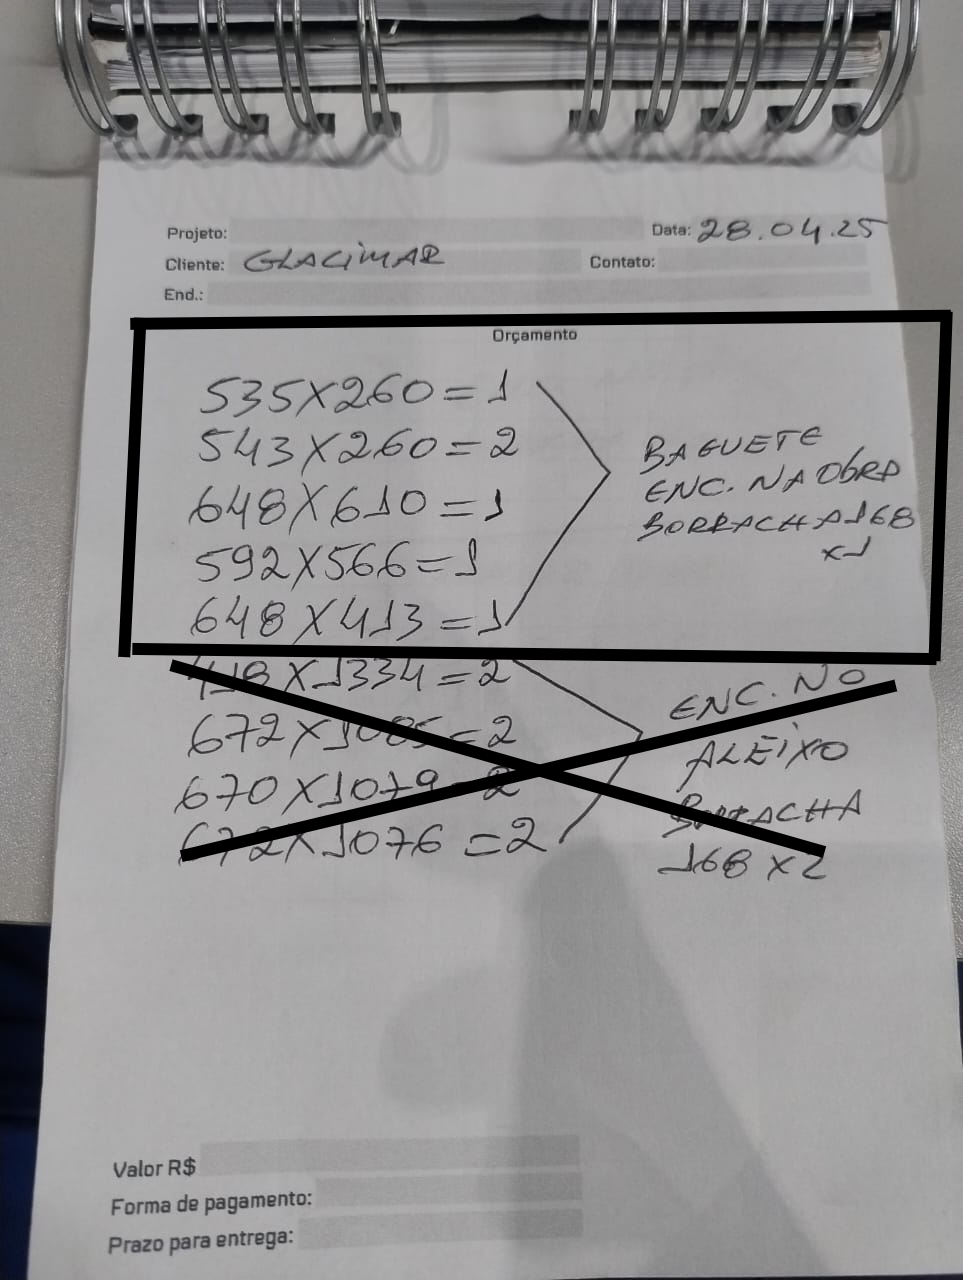 Projeto:
Data: 28.04.25
Cliente: GLACIMAR
Contato:
End.:
Orçamento
535X260=1
543X260=2
648X610=1
592X566=1
648X413=1
BAGUETE
ENC. NA OBRA
BORRACHA 168
x1
418X1334=2
672X1085=2
670X1079=2
672X1076=2
ENC. NO
ALEIXO
BORRACHA
168 X2
Valor R$
Forma de pagamento:
Prazo para entrega: